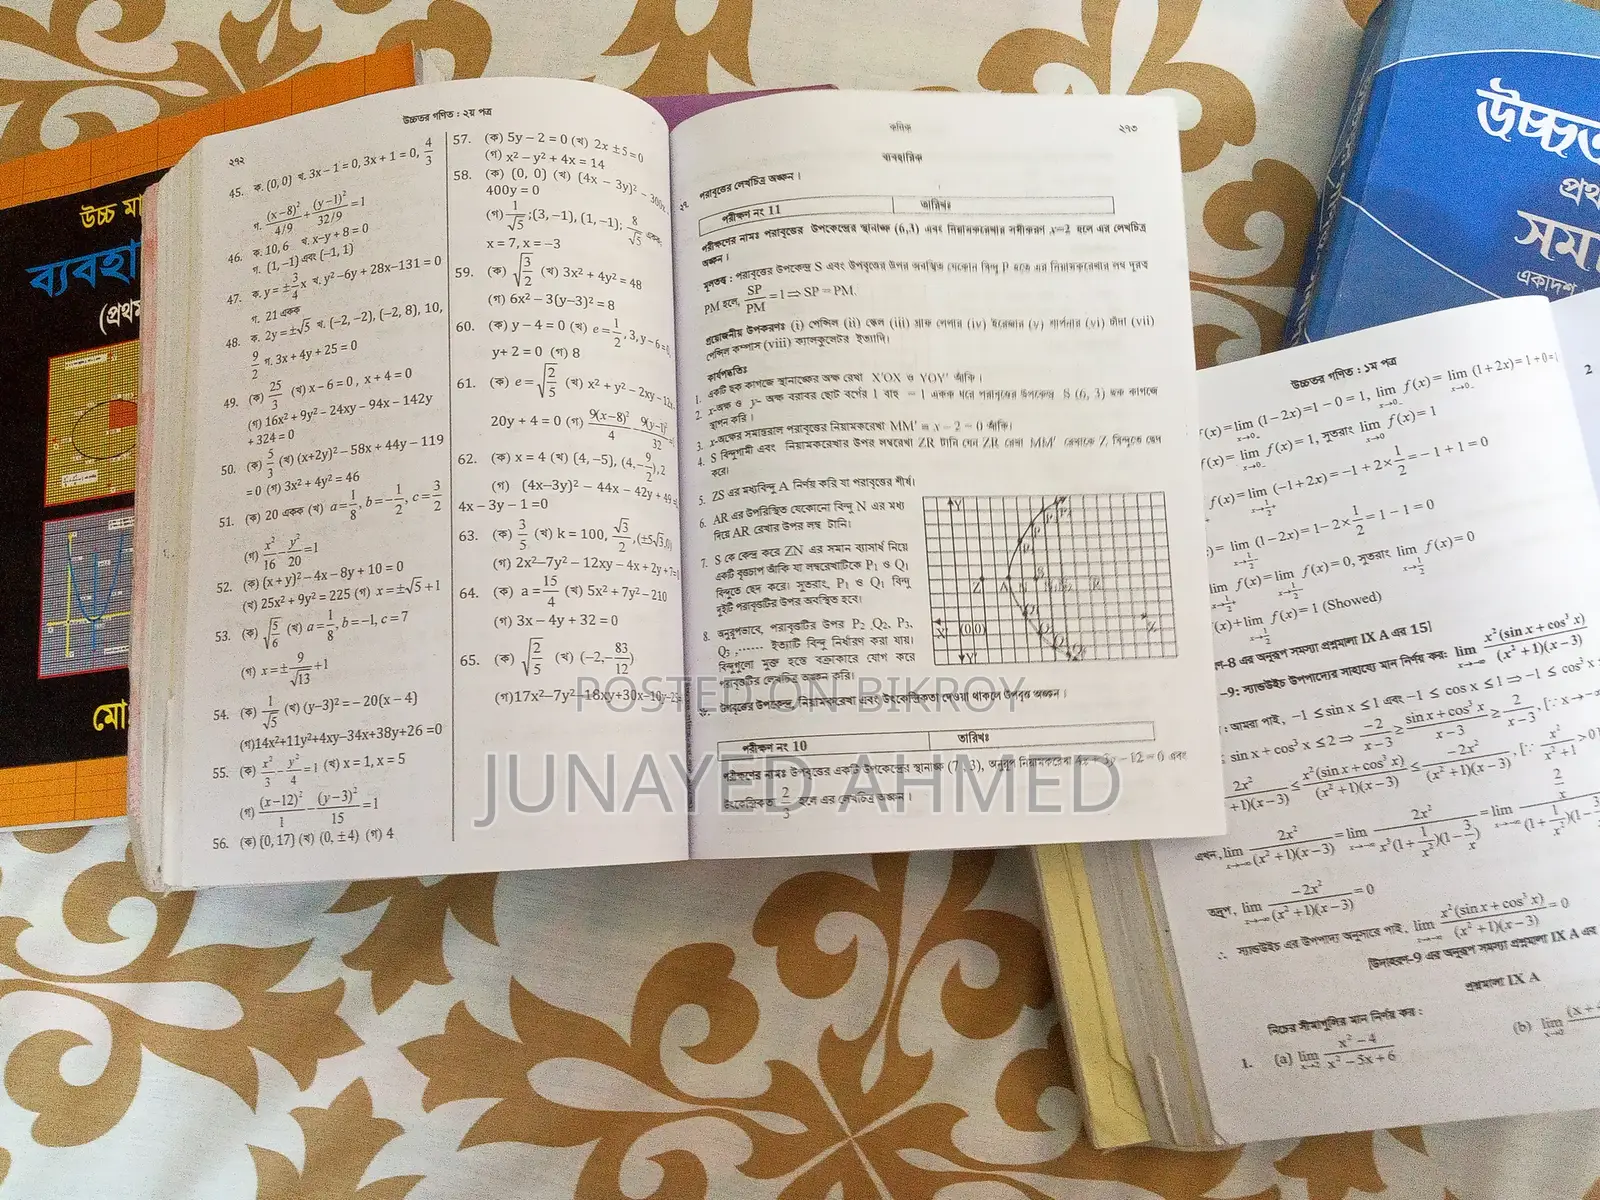 উচ্চ মা
ব্যবহা
(প্রথম
মো
উচ্চতর গণিত : ২য় পত্র
২৭২
45. ক. (0, 0) খ. 3x − 1 = 0, 3x + 1 = 0, 4/3
গ. (x−8)²/4/9 + (y−1)²/32/9 = 1
46. ক. 10, 6 খ. x−y + 8 = 0
গ. (1, −1) এবং (−1, 1)
47. ক. y = ±3/4 x খ. y²−6y + 28x−131 = 0
গ. 21 একক
48. ক. 2y = ±√5 খ. (−2, −2), (−2, 8), 10,
9/2 গ. 3x + 4y + 25 = 0
49. (ক) 25/3 (খ) x − 6 = 0 , x + 4 = 0
(গ) 16x² + 9y² − 24xy − 94x − 142y
+ 324 = 0
50. (ক) 5/3 (খ) (x+2y)² − 58x + 44y − 119
= 0 (গ) 3x² + 4y² = 46
51. (ক) 20 একক (খ) a = 1/8, b = −1/2, c = 3/2
(গ) x²/16 − y²/20 = 1
52. (ক) (x + y)² − 4x − 8y + 10 = 0
(খ) 25x² + 9y² = 225 (গ) x = ±√5 + 1
53. (ক) √5/6 (খ) a = 1/8, b = −1, c = 7
(গ) x = ± 9/√13 + 1
54. (ক) 1/√5 (খ) (y−3)² = −20(x − 4)
(গ)14x²+11y²+4xy−34x+38y+26 =0
55. (ক) x²/3 − y²/4 = 1 (খ) x = 1, x = 5
(গ) (x−12)²/1 − (y−3)²/15 = 1
56. (ক) (0, 17) (খ) (0, ±4) (গ) 4
57. (ক) 5y − 2 = 0 (খ) 2x ± 5 = 0
(গ) x² − y² + 4x = 14
58. (ক) (0, 0) (খ) (4x − 3y)² − 300x
400y = 0
(গ) 1/√5 ; (3, −1), (1, −1); 8/√5 একক;
x = 7, x = −3
59. (ক) √3/2 (খ) 3x² + 4y² = 48
(গ) 6x² − 3(y−3)² = 8
60. (ক) y − 4 = 0 (খ) e = 1/2, 3, y − 6 = 0,
y + 2 = 0 (গ) 8
61. (ক) e = √2/5 (খ) x² + y² − 2xy − 12x
20y + 4 = 0 (গ) 9(x−8)²/4 9(y−1)²/32
62. (ক) x = 4 (খ) (4, −5), (4, −9/2), 2
(গ) (4x−3y)² − 44x − 42y + 49
4x − 3y − 1 = 0
63. (ক) 3/5 (খ) k = 100, √3/2, (±5√3,0)
(গ) 2x²−7y²−12xy−4x+2y+7=
64. (ক) a = 15/4 (খ) 5x² + 7y² − 210
(গ) 3x − 4y + 32 = 0
65. (ক) √2/5 (খ) (−2, −83/12)
(গ)17x²−7y²−18xy+30x−10y−2
কনিক
২৭৩
ব্যবহারিক
পরাবৃত্তের লেখচিত্র অঙ্কন।
পরীক্ষণ নং 11 তারিখঃ
পরীক্ষণের নামঃ পরাবৃত্তের উপকেন্দ্রের স্থানাঙ্ক (6,3) এবং নিয়ামকরেখার সমীকরণ x=2 হলে এর লেখচিত্র
অঙ্কন।
মূলতত্ত্ব : পরাবৃত্তের উপকেন্দ্র S এবং উপবৃত্তের উপর অবস্থিত যেকোন বিন্দু P হতে এর নিয়ামকরেখার লম্ব দূরত্ব
PM হলে, SP/PM = 1 ⇒ SP = PM.
প্রয়োজনীয় উপকরণঃ (i) পেন্সিল (ii) স্কেল (iii) গ্রাফ পেপার (iv) ইরেজার (v) শার্পনার (vi) (vii)
পেন্সিল কম্পাস (viii) ক্যালকুলেটর ইত্যাদি।
কার্যপদ্ধতিঃ
1. একটি ছক কাগজে স্থানাঙ্কের অক্ষ রেখা X'OX ও YOY' আঁকি।
2. x-অক্ষ ও y- অক্ষ বরাবর ছোট বর্গের 1 বাহু = 1 একক ধরে পরাবৃত্তের উপকেন্দ্র S (6, 3) ছক কাগজে
স্থাপন করি।
3. x-অক্ষের সমান্তরাল পরাবৃত্তের নিয়ামকরেখা MM' ≡ x − 2 = 0 আঁকি।
4. S বিন্দুগামী এবং নিয়ামকরেখার উপর লম্বরেখা ZR টানি যেন ZR রেখা MM' রেখাকে Z বিন্দুতে ছেদ
করে।
5. ZS এর মধ্যবিন্দু A নির্ণয় করি যা পরাবৃত্তের শীর্ষ।
6. AR এর উপরিস্থিত যেকোনো বিন্দু N এর মধ্য
দিয়ে AR রেখার উপর লম্ব টানি।
7. S কে কেন্দ্র করে ZN এর সমান ব্যাসার্ধ নিয়ে
একটি বৃত্তচাপ আঁকি যা লম্বরেখাটিকে P₁ ও Q₁
বিন্দুতে ছেদ করে। সুতরাং, P₁ ও Q₁ বিন্দু
দুইটি পরাবৃত্তটির উপর অবস্থিত হবে।
8. অনুরূপভাবে, পরাবৃত্তটির উপর P₂ ,Q₂, P₃,
Q₃ ,...... ইত্যাদি বিন্দু নির্ধারণ করা যায়।
বিন্দুগুলো মুক্ত হস্তে বক্রাকারে যোগ করে
পরাবৃত্তটির লেখচিত্র অঙ্কন করি।
Y
Z A
X' (0,0)
Y'
উপবৃত্তের উপকেন্দ্র, নিয়ামকরেখা এবং উৎকেন্দ্রিকতা দেওয়া থাকলে উপবৃত্ত অঙ্কন।
পরীক্ষণ নং 10 তারিখঃ
পরীক্ষণের নামঃ উপবৃত্তের একটি উপকেন্দ্রের স্থানাঙ্ক (7, 3), অনুরূপ নিয়ামকরেখা 4x + 3y − 12 = 0 এবং
উৎকেন্দ্রিকতা 2/3 হলে এর লেখচিত্র অঙ্কন।
POSTED ON BIKROY
JUNAYED AHMED
উচ্চত
প্রথ
সমা
একাদশ
উচ্চতর গণিত : ১ম পত্র
2
f(x) = lim x→0₋ (1 − 2x) = 1 − 0 = 1, lim x→0₋ f(x) = lim x→0₋ (1 + 2x) = 1 + 0 = 1
f(x) = lim x→0₋ f(x) = 1, সুতরাং lim x→0 f(x) = 1
f(x) = lim x→1/2⁺ (−1 + 2x) = −1 + 2 × 1/2 = −1 + 1 = 0
) = lim x→1/2⁻ (1 − 2x) = 1 − 2 × 1/2 = 1 − 1 = 0
lim x→1/2⁺ f(x) = lim x→1/2⁻ f(x) = 0, সুতরাং lim x→1/2 f(x) = 0
(x) + lim x→1/2 f(x) = 1 (Showed)
-8 এর অনুরূপ সমস্যা প্রশ্নমালা IX A এর 15]
-9: স্যান্ডউইচ উপপাদ্যের সাহায্যে মান নির্ণয় কর: lim x→−∞ x²(sin x + cos³ x)/(x² + 1)(x − 3)
: আমরা পাই, −1 ≤ sin x ≤ 1 এবং −1 ≤ cos x ≤ 1 ⇒ −1 ≤ cos³ x
≤ sin x + cos³ x ≤ 2 ⇒ −2/x − 3 ≥ sin x + cos³ x/x − 3 ≥ 2/x − 3, [∵ x → −∞
2x²/+1)(x − 3) ≤ x²(sin x + cos³ x)/(x² + 1)(x − 3) ≤ −2x²/(x² + 1)(x − 3), [∵ x²/x² + 1 > 0
এখন, lim x→−∞ 2x²/(x² + 1)(x − 3) = lim x→−∞ 2x²/x³(1 + 1/x²)(1 − 3/x) = lim x→−∞ 2/x/(1 + 1/x²)(1 − 3/x
তদ্রূপ, lim x→−∞ −2x²/(x² + 1)(x − 3) = 0
∴ স্যান্ডউইচ এর উপপাদ্য অনুসারে পাই, lim x→−∞ x²(sin x + cos³ x)/(x² + 1)(x − 3) = 0
[উদাহরণ-9 এর অনুরূপ সমস্যা প্রশ্নমালা IX A এর
প্রশ্নমালা IX A
নিচের সীমাগুলির মান নির্ণয় কর :
1. (a) lim x→2 x² − 4/x² − 5x + 6 (b) lim x→0 (x +